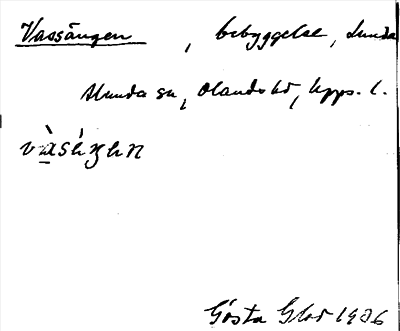 Vassängen , bebyggelse, Lunda
Alunda sn, Olands hd, Upps. l.
Gösta Glad 1926